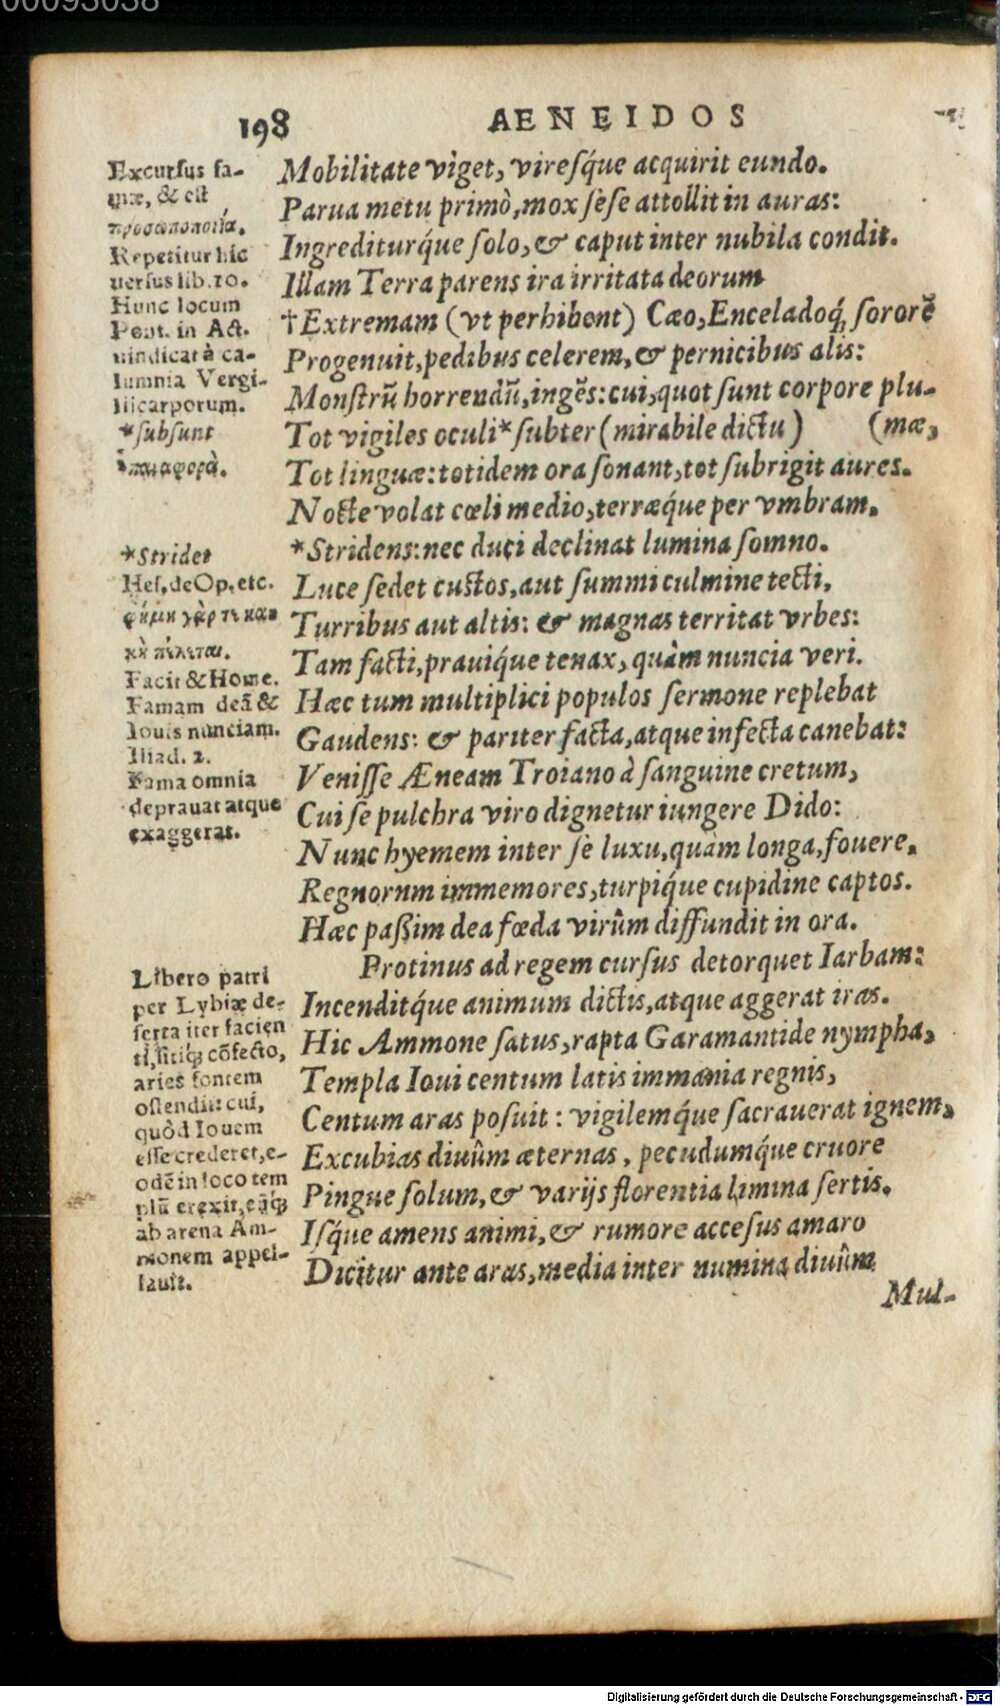 00093038
198 AENEIDOS
Excursus fa-
mæ, & est
προσωποποιΐα.
Repetitur hic
uersus lib. 10.
Hunc locum
Pont. in Act.
uindicat à ca-
lumnia Vergi-
liicarporum.
*subsunt
ἐπαναφορὰ.
*Stridet
Hes. de Op. etc.
φήμη γάρ τε κακὴ πέλεται.
Facit & Home.
Famam deā &
Iouis nunciam.
Iliad. 2.
Fama omnia
deprauat atque
exaggerat.
Libero patri
per Lybiæ de-
serta iter facien
ti, sitiq́; cōfecto,
aries fontem
ostendit: cui,
quòd Iouem
esse crederet, e-
odē in loco tem
plū erexit, eūq́;
ab arena Am-
monem appel-
lauit.
Mobilitate viget, viresq́ue acquirit eundo.
Parua metu primò, mox sese attollit in auras:
Ingrediturq́ue solo, & caput inter nubila condit.
Illam Terra parens ira irritata deorum
†Extremam (vt perhibent) Cæo, Enceladoq́; sororē
Progenuit, pedibus celerem, & pernicibus alis:
Monstrū horrendū, ingēs: cui, quot sunt corpore plu-
Tot vigiles oculi *subter (mirabile dictu) (mæ,
Tot linguæ: totidem ora sonant, tot subrigit aures.
Nocte volat cœli medio, terræq́ue per vmbram.
*Stridens: nec duci declinat lumina somno.
Luce sedet custos, aut summi culmine tecti,
Turribus aut altis: & magnas territat vrbes:
Tam facti, prauiq́ue tenax, quàm nuncia veri.
Hæc tum multiplici populos sermone replebat
Gaudens: & pariter facta, atque infecta canebat:
Venisse Æneam Troiano à sanguine cretum,
Cui se pulchra viro dignetur iungere Dido:
Nunc hyemem inter se luxu, quàm longa, fouere,
Regnornm immemores, turpiq́ue cupidine captos.
Hæc paßim dea fœda virûm diffundit in ora.
Protinus ad regem cursus detorquet Iarbam:
Incenditq́ue animum dictis, atque aggerat iras.
Hic Ammone satus, rapta Garamantide nympha,
Templa Ioui centum latis immania regnis,
Centum aras posuit: vigilemq́ue sacrauerat ignem,
Excubias diuûm æternas, pecudumq́ue cruore
Pingue solum, & varijs florentia limina sertis.
Isq́ue amens animi, & rumore accesus amaro
Dicitur ante aras, media inter numina diuûm
Mul-
Digitalisierung gefördert durch die Deutsche Forschungsgemeinschaft - DFG